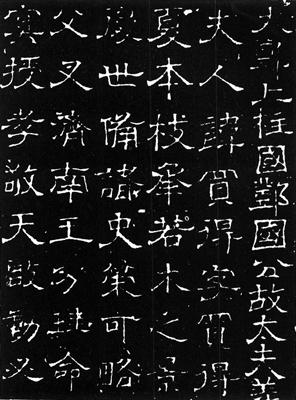 大上柱國鄧國公故太
夫人諱買得字買得
夏本枝峯若木之景
世備諸史策可略
父叉濟南王分珪命
實授孝敬天啟勤必